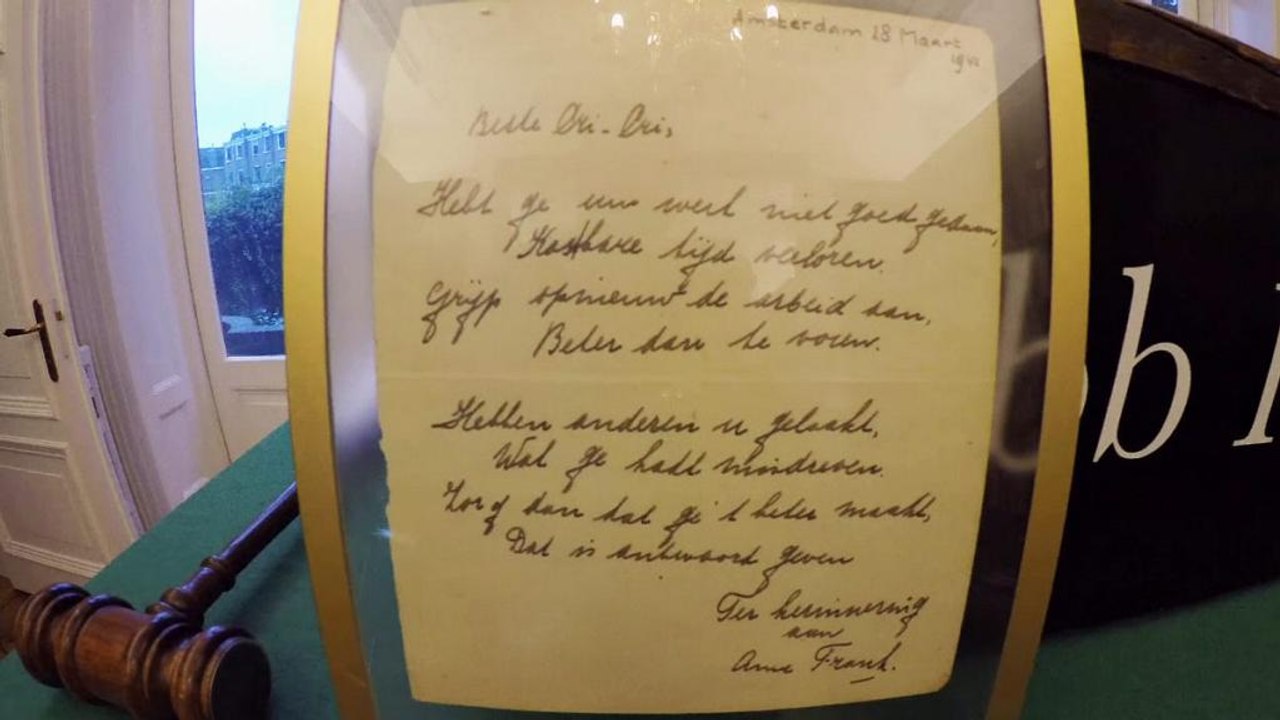 Amsterdam 28 Maart
1942
Beste Cri-Cri,
Hebt ge uw werk niet goed gedaan,
Kostbare tijd verloren.
Grijp opnieuw de arbeid aan,
Beter dan te voren.
Hebben anderen u gelaakt,
Wat ge hadt misdreven.
Zorg dan dat ge 't beter maakt,
Dat is antwoord geven
Ter herinnering
aan
Anne Frank.
bb